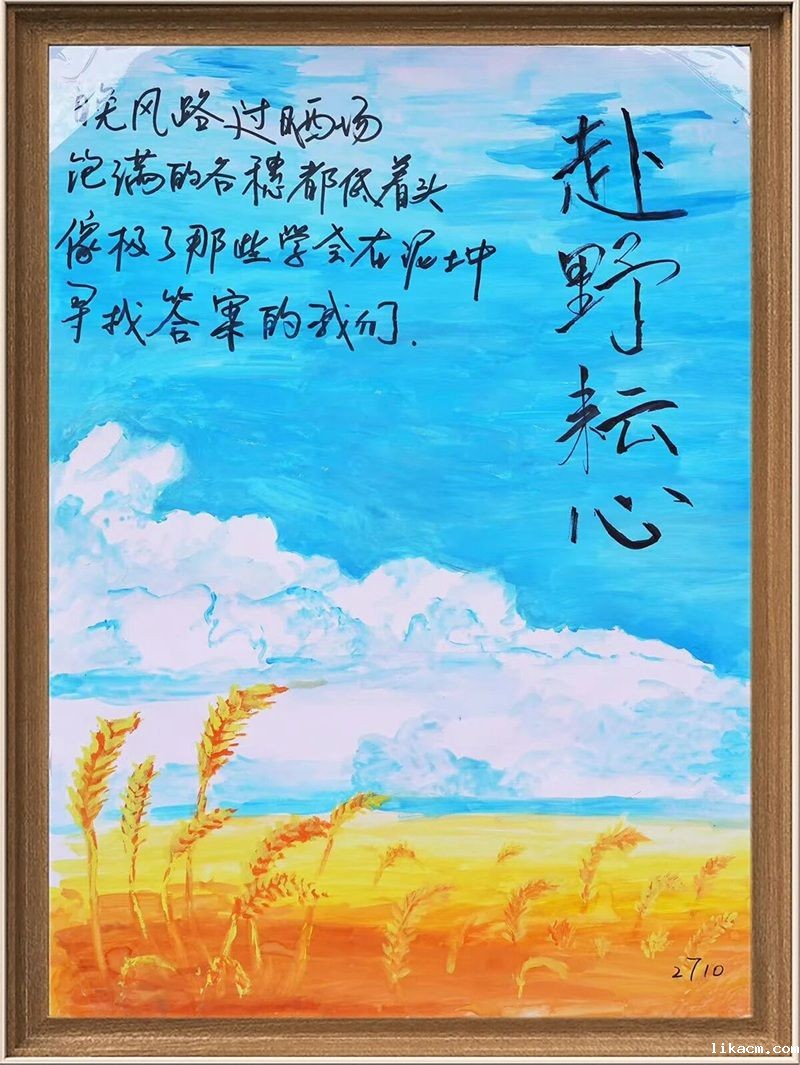 晚风路过晒场
饱满的各穗都低着头
像极了那些学会在泥土中
寻找答案的我们.
赴野耘心
2710
likacm.com